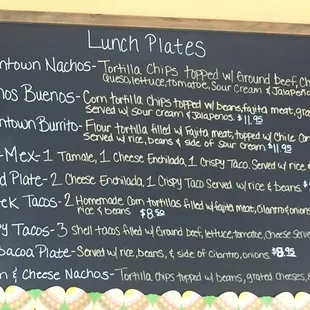 Lunch Plates
ntown Nachos- Tortilla chips topped w/ Ground beef, Ch
Queso, lettuce, tomatoe, Sour Cream & Jalapeño
hos Buenos- Corn tortilla chips topped w/ beans, fajita meat, gra
Served w/ sour cream & Jalapenos. $11.95
ntown Burrito- Flour tortilla filled w/ Fajita meat, topped w/ Chile Con
Served w/ rice, beans & side of Sour cream $11.95
-Mex- 1 Tamale, 1 Cheese Enchilada, 1 Crispy Taco. Served w/ rice &
d Plate- 2 Cheese Enchilada, 1 Crispy Taco Served w/ rice & beans. $
ek Tacos- 2 Homemade Corn tortillas filled w/ fajita meat, Cilantro & onions
rice & beans $8.50
y Tacos- 3 Shell tacos filled w/ Ground beef, lettuce, tomatoe, Cheese Serve
bacoa Plate- Served w/ rice, beans, & side of Cilantro, onions $8.95
n & Cheese Nachos- Tortilla chips topped w/ beans, grated cheeses,